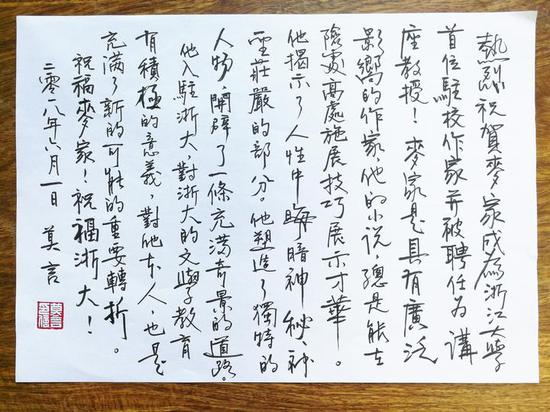 熱烈祝賀麥家成為浙江大學
首位駐校作家并被聘任为講
座教授！麥家是具有廣泛
影響的作家，他的小说總是能在
險處高處施展技巧展示才華。
他揭示了人性中晦暗神秘、神
聖莊嚴的部分。他塑造了獨特的
人物，開辟了一條充满奇景的道路。
他入駐浙大，對浙大的文學教育
有積極的意義，對他本人，也是
充满了新的可能的重要轉折。
祝福麥家！祝福浙大！
二零一八年六月一日 莫言